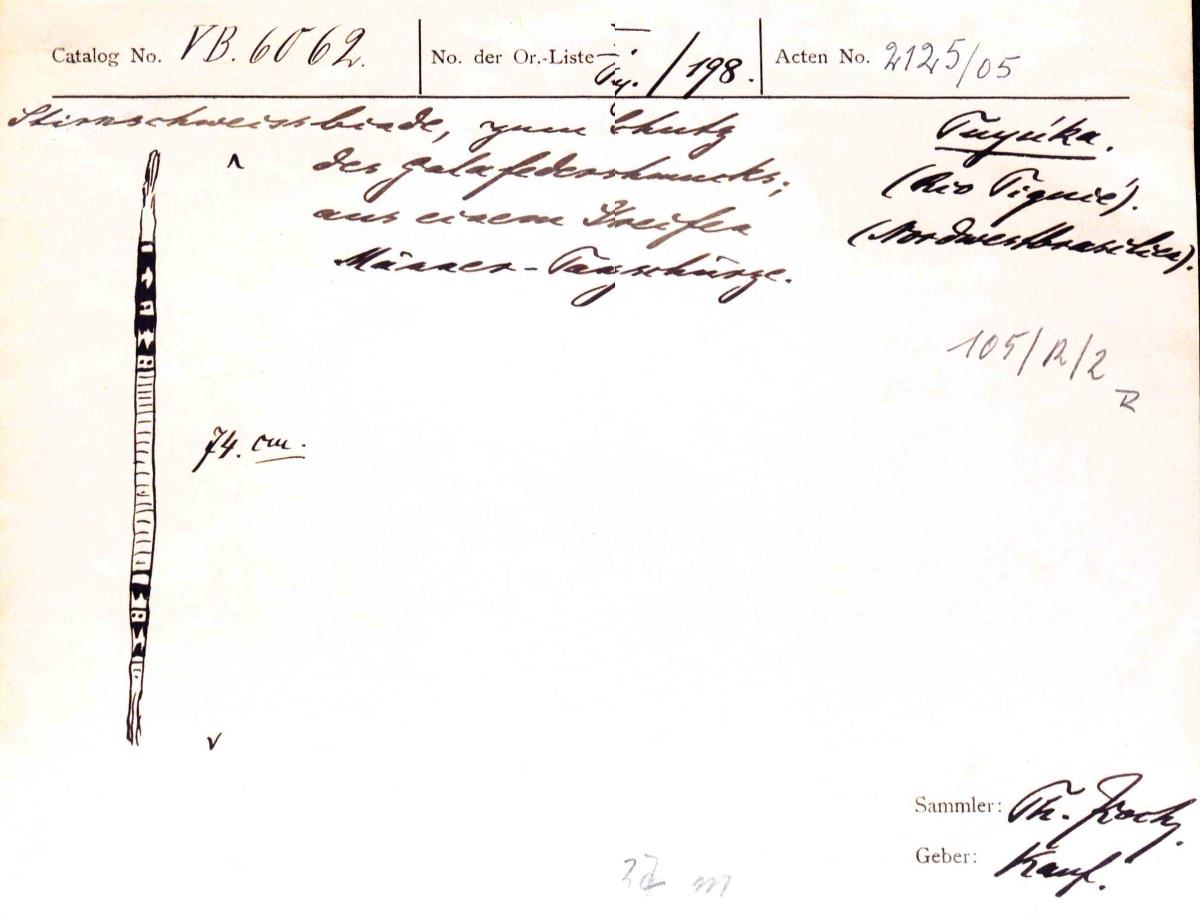 Catalog No. VB. 6062.
No. der Or.-Liste Tuy. / 198.
Acten No. 2125/05
Stirnschweissbinde, zum Schutz
des Galafederschmucks;
aus einem Streifen
Männer-Tanzschürze.
Tuyúka.
(Rio Tiquié).
(Nordwestbrasilien).
105/R/2
R
74. cm.
Sammler: Th. Koch,
Geber: Kauf.
m